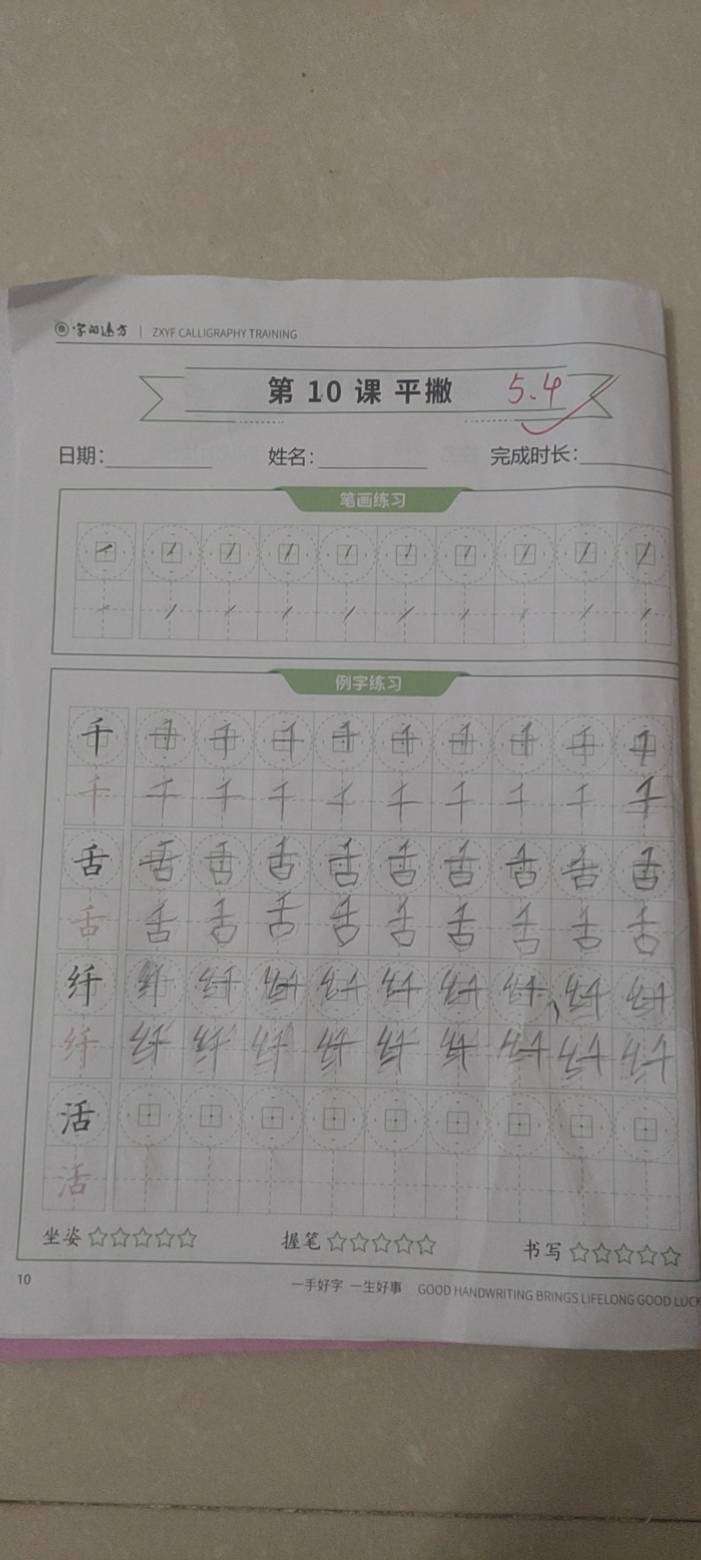 字向远方 | ZXYF CALLIGRAPHY TRAINING
第 10 课 平撇 5.4
日期: 姓名: 完成时长:
笔画练习
例字练习
千 千 千 千 千 千 千 千 千 千
千 千 千 千 千 千 千 千 千 千
舌 舌 舌 舌 舌 舌 舌 舌 舌 舌
舌 舌 舌 舌 舌 舌 舌 舌 舌 舌
纤 纤 纤 纤 纤 纤 纤 纤 纤 纤
纤 纤 纤 纤 纤 纤 纤 纤 纤 纤
活
活
坐姿 ☆☆☆☆☆ 握笔 ☆☆☆☆☆ 书写 ☆☆☆☆☆
10 一手好字 一生好事 GOOD HANDWRITING BRINGS LIFELONG GOOD LUCK